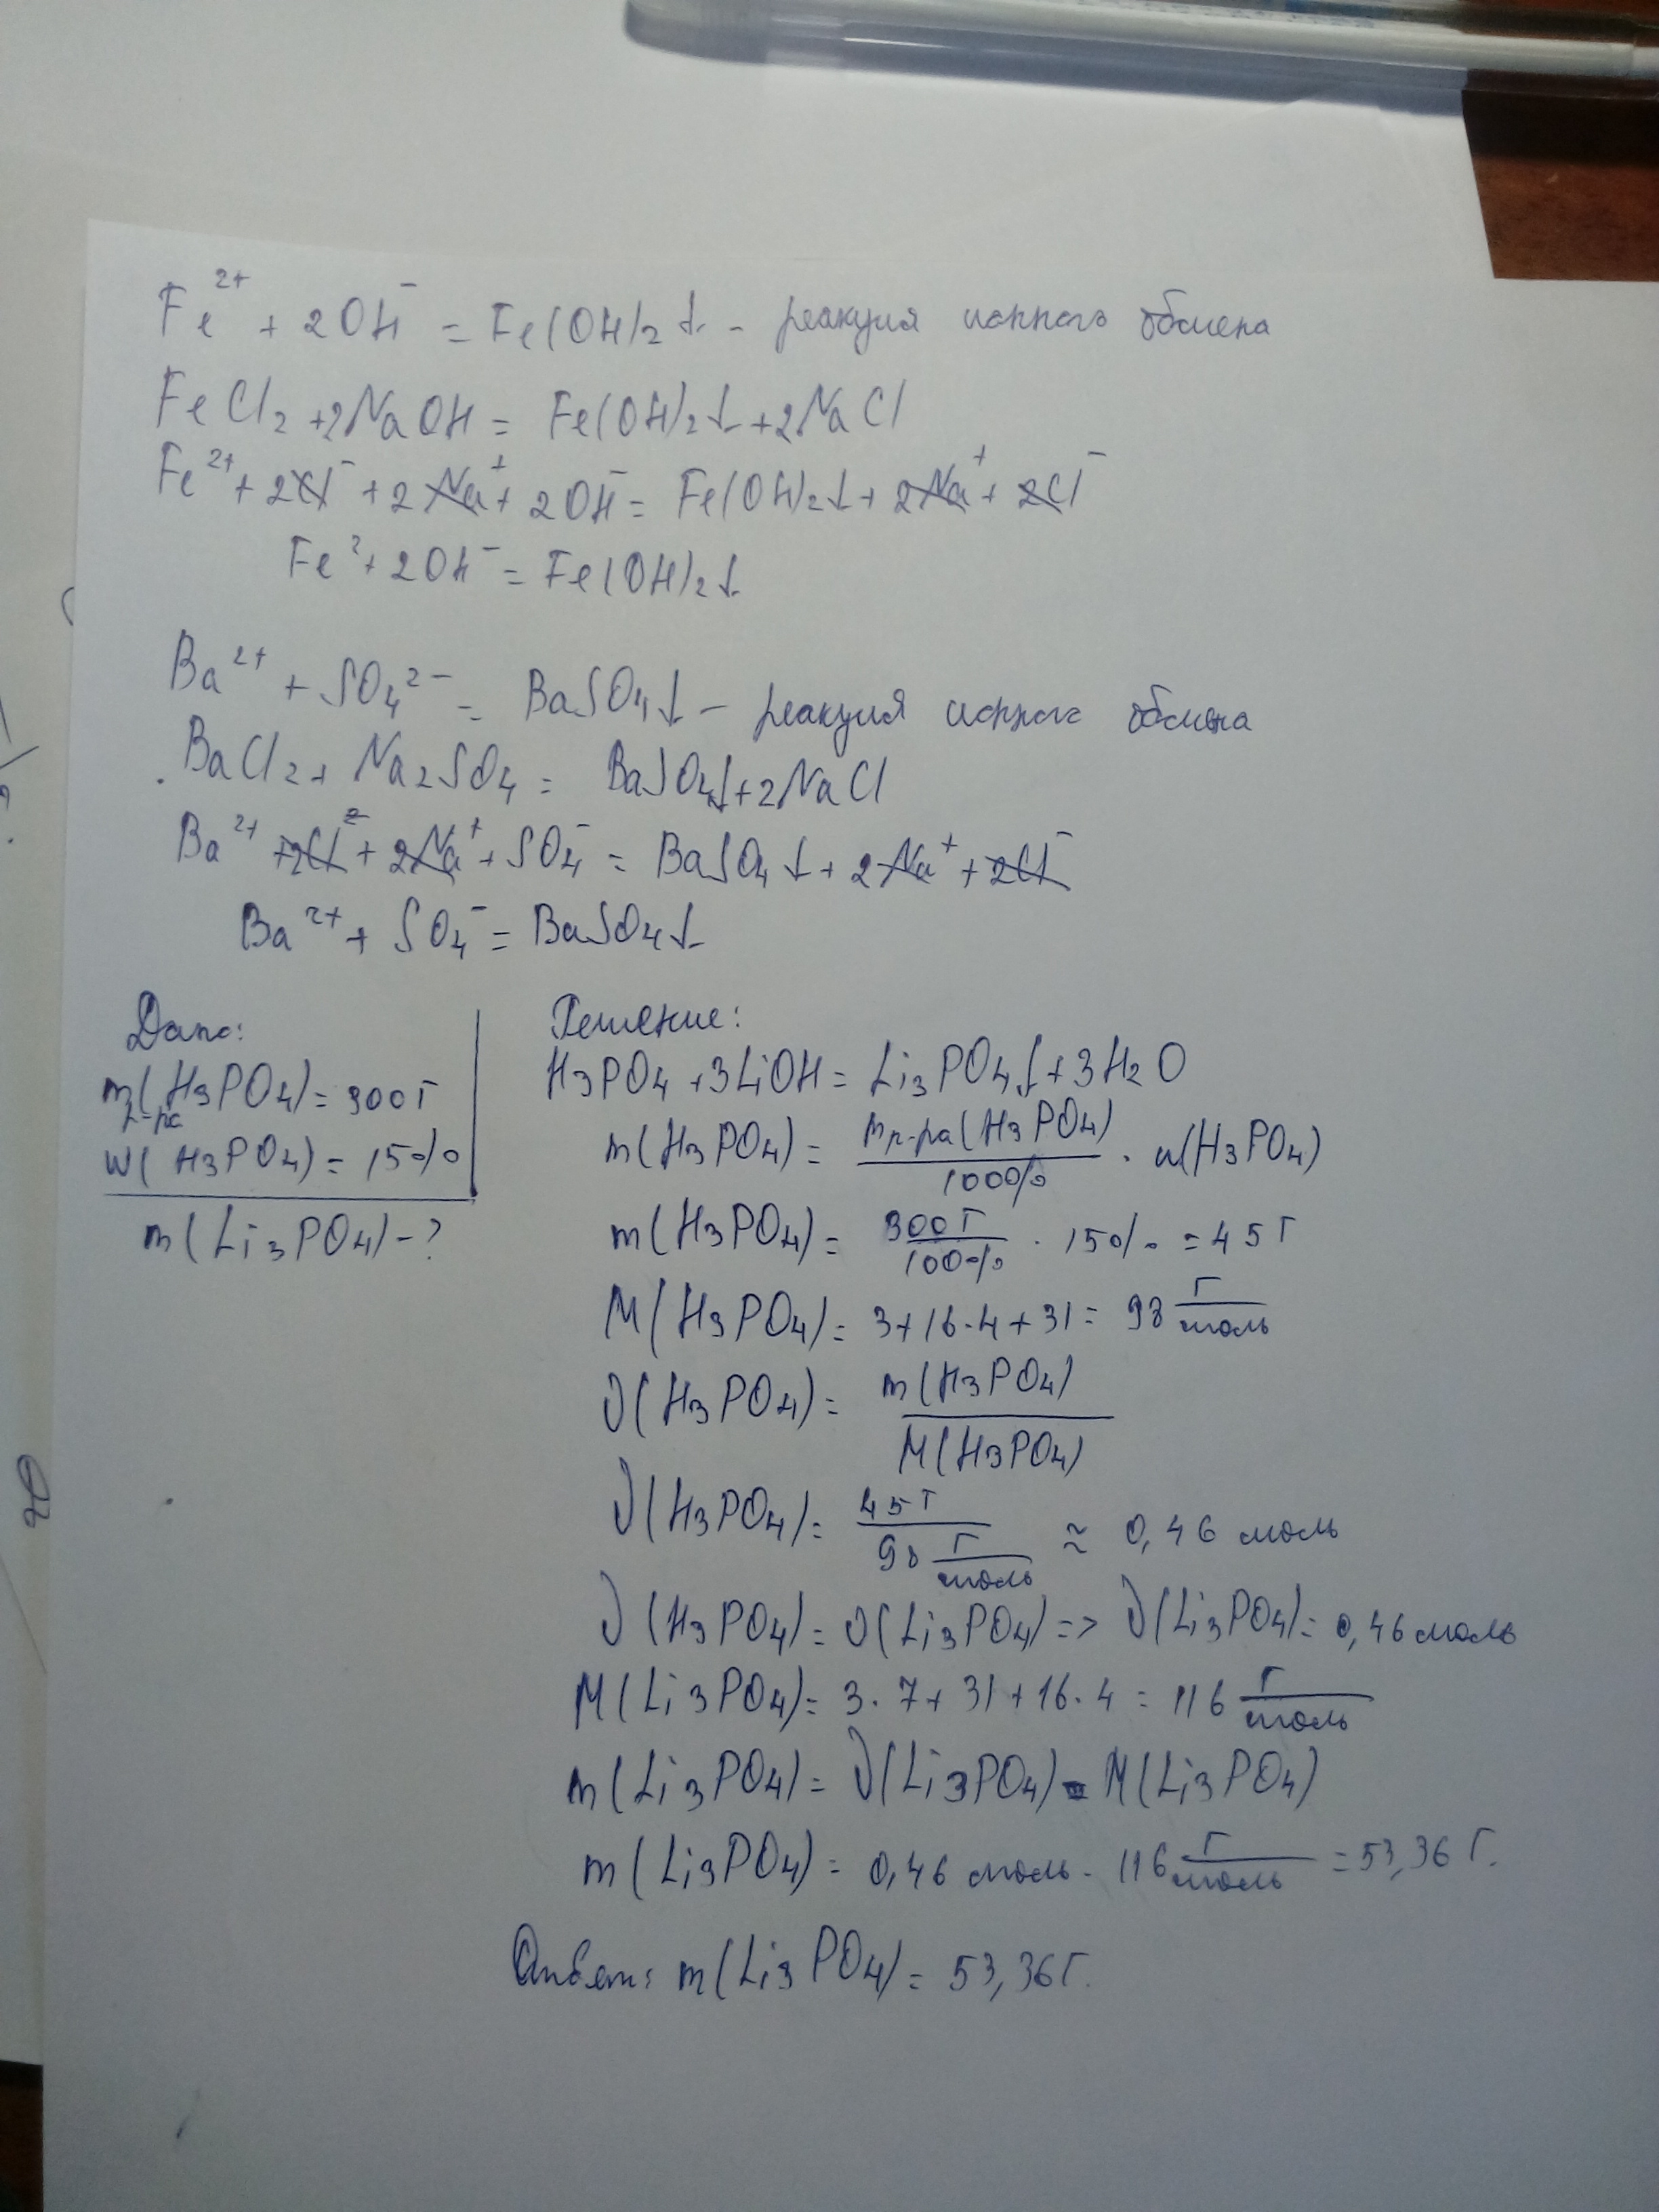 Fe²⁺ + 2OH⁻ = Fe(OH)₂↓ - реакция ионного обмена
FeCl₂ + 2NaOH = Fe(OH)₂↓ + 2NaCl
Fe²⁺ + 2Cl⁻ + 2Na⁺ + 2OH⁻ = Fe(OH)₂↓ + 2Na⁺ + 2Cl⁻
Fe²⁺ + 2OH⁻ = Fe(OH)₂↓
Ba²⁺ + SO₄²⁻ = BaSO₄↓ - реакция ионного обмена
BaCl₂ + Na₂SO₄ = BaSO₄↓ + 2NaCl
Ba²⁺ + 2Cl⁻ + 2Na⁺ + SO₄⁻ = BaSO₄↓ + 2Na⁺ + 2Cl⁻
Ba²⁺ + SO₄⁻ = BaSO₄↓
Дано:
m р-ра (H₃PO₄) = 300 г
w(H₃PO₄) = 15%
m(Li₃PO₄) - ?
Решение:
H₃PO₄ + 3LiOH = Li₃PO₄↓ + 3H₂O
m(H₃PO₄) = mр-ра(H₃PO₄) / 100% · w(H₃PO₄)
m(H₃PO₄) = 300 г / 100% · 15% = 45 г
M(H₃PO₄) = 3+16·4+31 = 98 г/моль
ν(H₃PO₄) = m(H₃PO₄) / M(H₃PO₄)
ν(H₃PO₄) = 45 г / 98 г/моль ≈ 0,46 моль
ν(H₃PO₄) = ν(Li₃PO₄) => ν(Li₃PO₄) = 0,46 моль
M(Li₃PO₄) = 3·7+31+16·4 = 116 г/моль
m(Li₃PO₄) = ν(Li₃PO₄) · M(Li₃PO₄)
m(Li₃PO₄) = 0,46 моль · 116 г/моль = 53,36 г.
Ответ: m(Li₃PO₄) = 53,36 г.